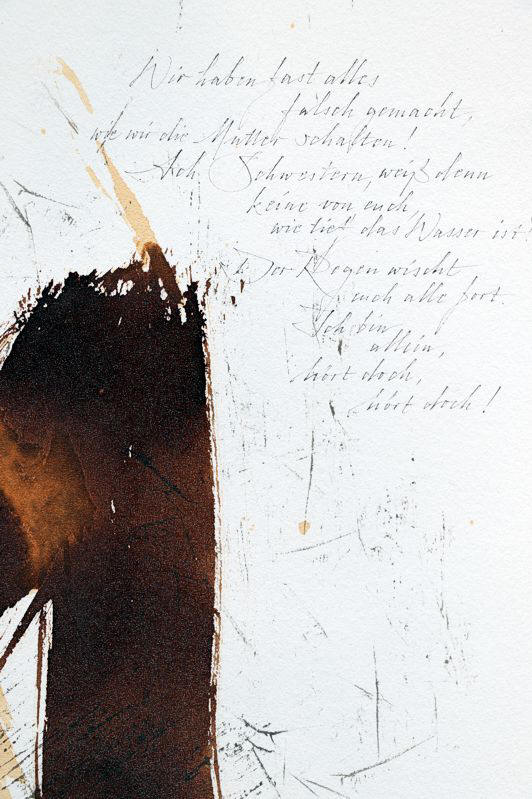 Wir haben fast alles
falsch gemacht,
wie wir die Mutter schalten!
Ach Schwestern, weiß denn
keine von euch,
wie tief das Wasser ist!
Der Regen wischt
euch alle fort.
Ich bin
allein,
hört doch,
hört doch!